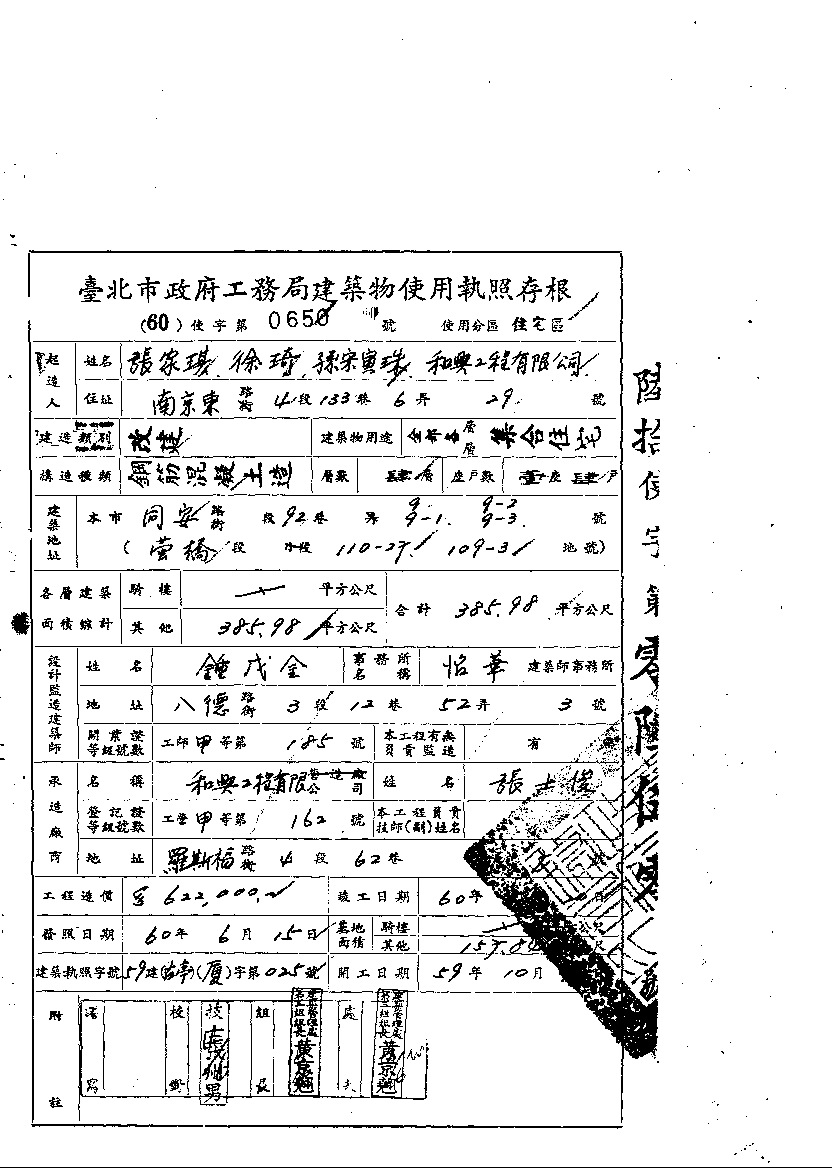 臺北市政府工務局建築物使用執照存根
(60)使字第 0650 號 使用分區 住宅區
起造人 姓名 張家瑒 徐琦 孫宋寅珠 和興工程有限公司
住址 南京東 路街 4 段 133 巷 6 弄 29 號
建造類別 改建 建築物用途 全部各層 集合住宅
構造種類 鋼筋混凝土造 層數 肆層 座戶數 壹座 肆戶
建築地址 本市 同安 路街 段 92 巷 弄 9. 9-1. 9-2 9-3. 號
(螢橋 段 小段 110-27 109-31 地號)
各層建築面積總計 騎樓 平方公尺 合計 385.98 平方公尺
其他 385.98 平方公尺
設計監造建築師 姓名 鍾茂金 事務所名稱 怡華 建築師事務所
地址 八德 路街 3 段 12 巷 52 弄 3 號
開業證等級號數 工師 甲 等第 185 號 本工程有無負責監造 有
承造廠商 名稱 和興工程有限公司 營造廠 姓名 張士俊
登記證等級號數 工營 甲 等第 162 號 本工程負責技師(副)姓名
地址 羅斯福 路街 4 段 62 巷
工程造價 622,000 竣工日期 60年
發照日期 60年 6月 15日 基地面積 騎樓 公尺
其他 157.8
建築執照字號 59建 (廈)字第 025 號 開工日期 59年 10月
附註 校對 組長 處長
陸拾使字第零陸伍零號